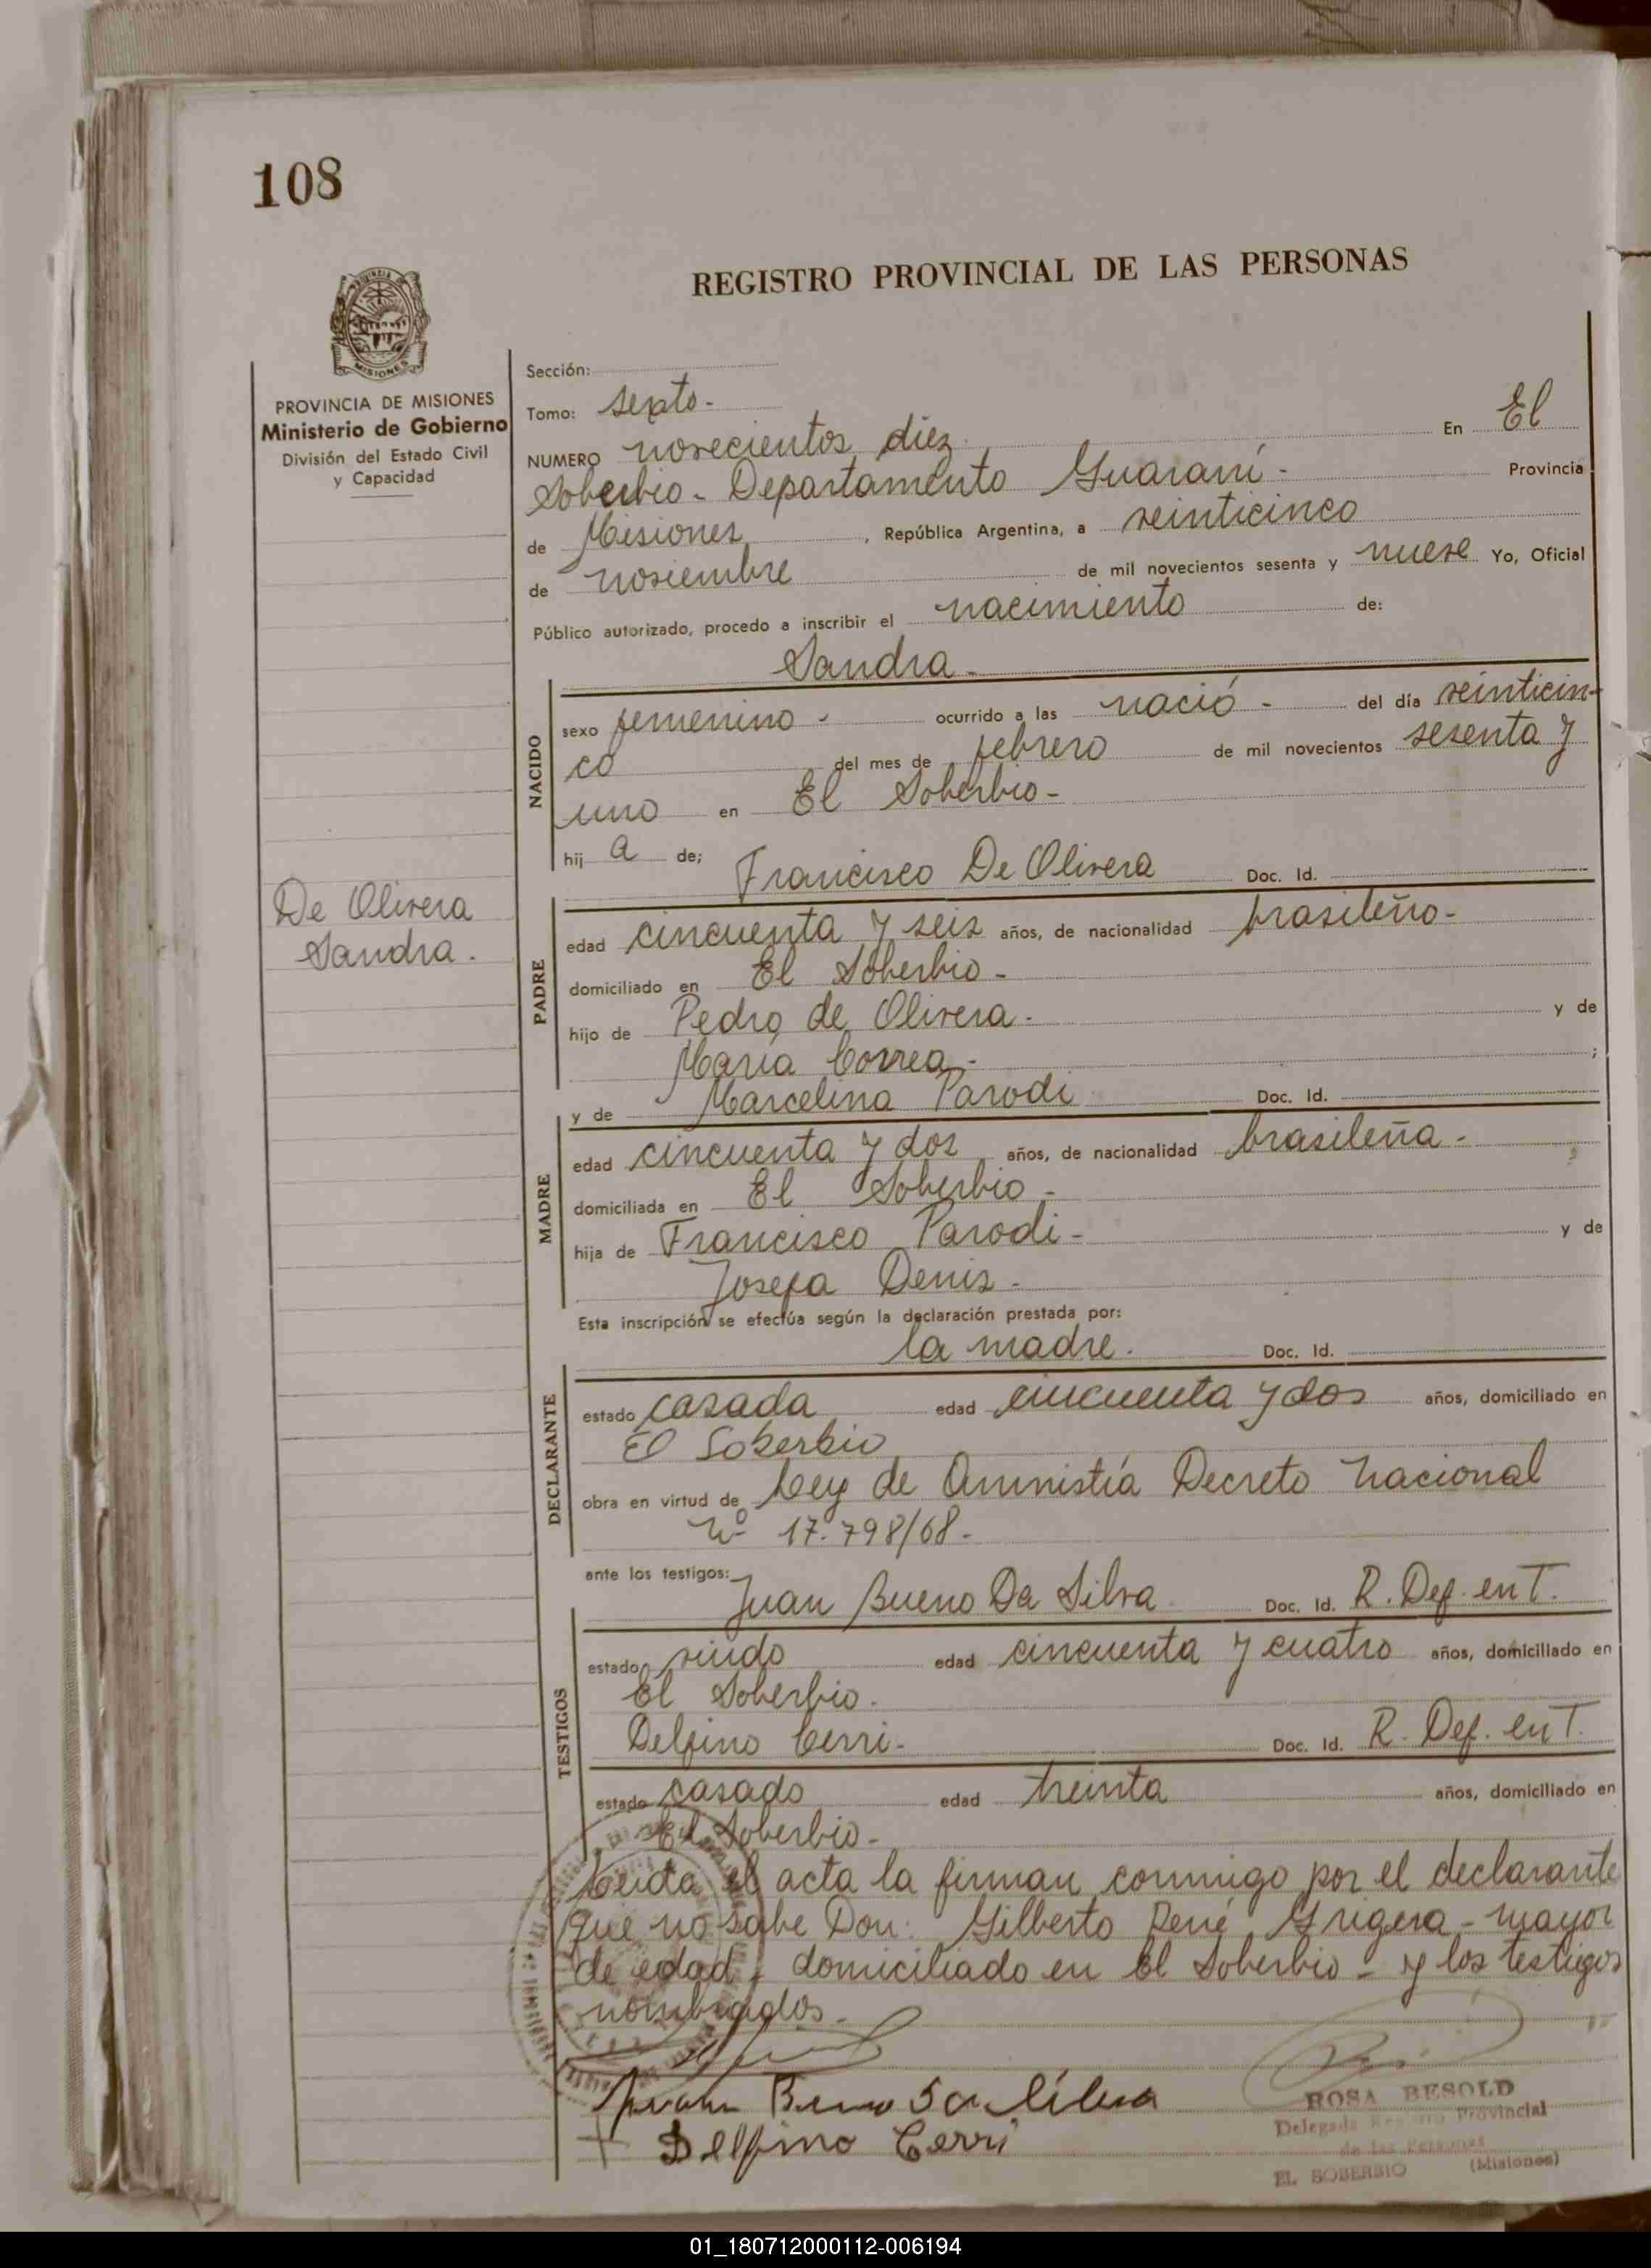 108
REGISTRO PROVINCIAL DE LAS PERSONAS
MISIONES
PROVINCIA DE MISIONES
Ministerio de Gobierno
División del Estado Civil
y Capacidad
Sección:
Tomo: sexto.-
NUMERO novecientos diez En El
Soberbio - Departamento Guaraní - Provincia
de Misiones, República Argentina, a veinticinco
de noviembre de mil novecientos sesenta y nueve Yo, Oficial
Público autorizado, procedo a inscribir el nacimiento de:
Sandra -
NACIDO
sexo femenino - ocurrido a las nació - del día veinticin-
co del mes de febrero de mil novecientos sesenta y
uno en El Soberbio -
hij a de; Francisco De Olivera Doc. Id.
De Olivera
Sandra.
PADRE
edad cincuenta y seis años, de nacionalidad brasileño -
domiciliado en El Soberbio -
hijo de Pedro de Olivera - y de
María Correa - ;
y de Marcelina Parodi Doc. Id.
MADRE
edad cincuenta y dos años, de nacionalidad brasileña -
domiciliada en El Soberbio -
hija de Francisco Parodi - y de
Josefa Denis -
Esta inscripción se efectúa según la declaración prestada por:
la madre. Doc. Id.
DECLARANTE
estado casada edad cincuenta y dos años, domiciliado en
El Soberbio
obra en virtud de Ley de Amnistía Decreto Nacional
Nº 17.798/68 -
ante los testigos:
Juan Bueno Da Silva Doc. Id. R. Def. en T.
TESTIGOS
estado viudo edad cincuenta y cuatro años, domiciliado en
El Soberbio.
Delfino Cerri - Doc. Id. R. Def. en T.
estado casado edad treinta años, domiciliado en
El Soberbio -
Leída el acta la firman conmigo por el declarante
que no sabe Don: Gilberto René Grigera - mayor
de edad, domiciliado en El Soberbio - y los testigos
nombrados -
Delfino Cerri
ROSA BESOLD
Delegada Registro Provincial
de las Personas
EL SOBERBIO (Misiones)
01_180712000112-006194